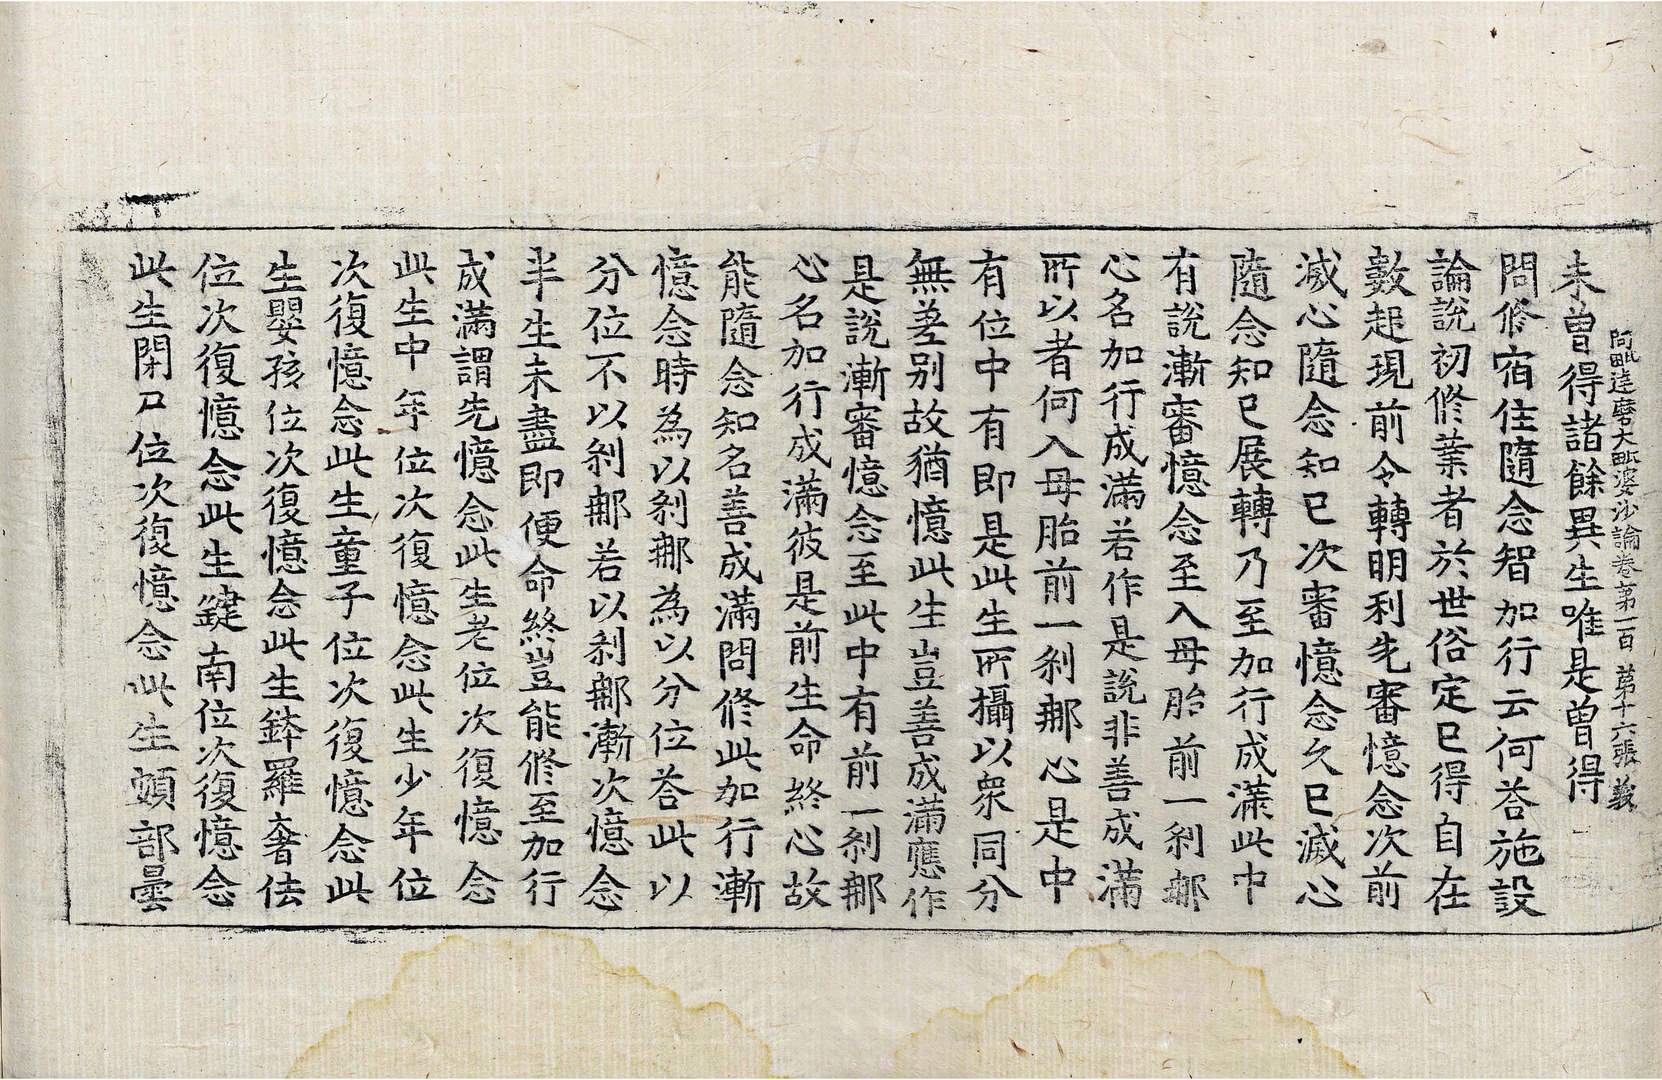 阿毗達磨大毗婆沙論卷第一百 第十六張 義
未曾得諸餘異生唯是曾得
問修宿住隨念智加行云何答施設
論說初修業者於世俗定已得自在
數起現前令轉明利先審憶念次前
滅心隨念知已次審憶念久已滅心
隨念知已展轉乃至加行成滿此中
有說漸審憶念至入母胎前一剎那
心名加行成滿若作是說非善成滿
所以者何入母胎前一剎那心是中
有位中有即是此生所攝以衆同分
無差别故猶憶此生豈善成滿應作
是說漸審憶念至此中有前一剎那
心名加行成滿彼是前生命終心故
能隨念知名善成滿問修此加行漸
憶念時為以剎那為以分位答此以
分位不以剎那若以剎那漸次憶念
半生未盡即便命終豈能修至加行
成滿謂先憶念此生老位次復憶念
此生中年位次復憶念此生少年位
次復憶念此生童子位次復憶念此
生嬰孩位次復憶念此生鉢羅奢佉
位次復憶念此生鍵南位次復憶念
此生閉尸位次復憶念此生頞部曇